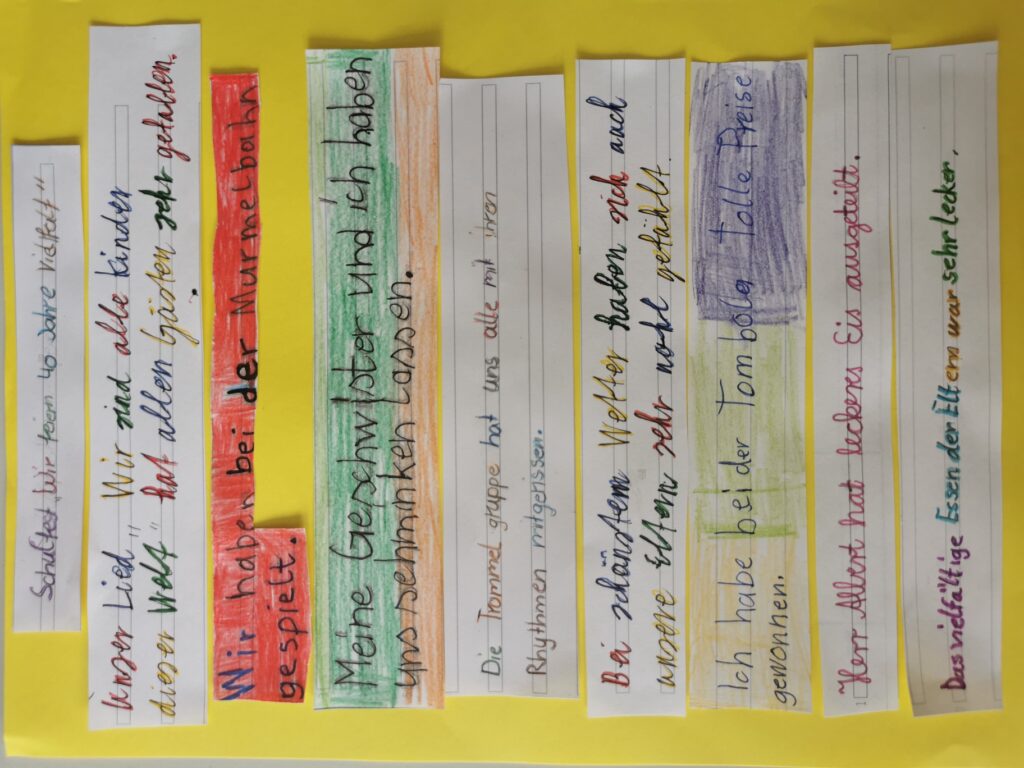 Schulfest „Wir feiern 40 Jahre Vielfalt"
Unser Lied „Wir sind alle Kinder
dieser Welt" hat allen Gästen sehr gefallen.
Wir haben bei der Murmelbahn
gespielt.
Meine Geschwister und ich haben
uns schminken lassen.
Die Trommel gruppe hat uns alle mit iren
Rhythmen mitgerissen.
Bei schönstem Wetter haben sich auch
unsere Eltern sehr wohl gefühlt.
Ich habe bei der Tombola Tolle Preise
gewonnen.
Herr Albert hat leckeres Eis ausgeteilt.
Das vielfältige Essen der Eltern war sehr lecker.